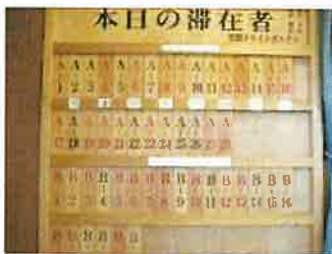 本日の滞在者
A A A A A A A A A A A A A A A A
1 2 3 4 5 6 7 8 9 10 11 12 13 14 15 16
A A A A A A A A A A A A
17 18 19 20 21 22 23 24 25 26 27 28
B B B B B B B B B B B B B B B B
1 2 3 4 5 6 7 8 9 10 11 12 13 14 15 16
B B B B B B